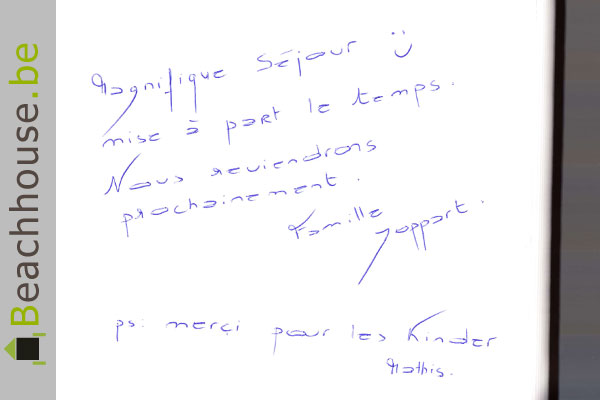 Beachhouse.be
Magnifique Séjour :)
mise à part le temps.
Nous reviendrons
prochainement.
Famille Joppart.
ps: merci pour les Kinder
Mathis.